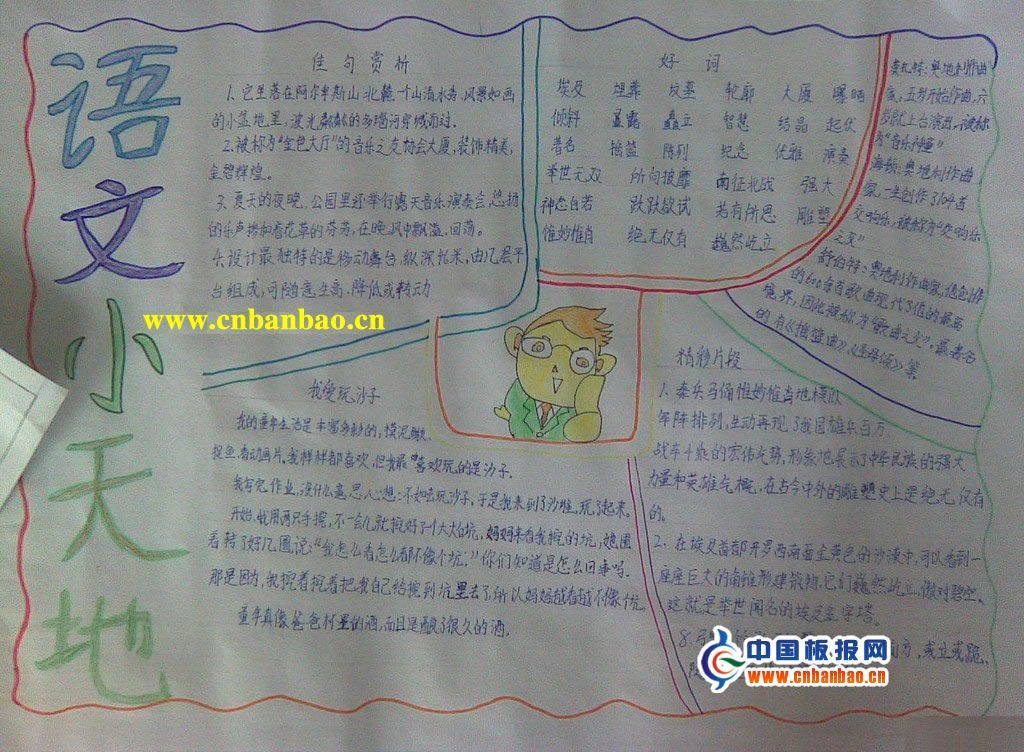 语文小天地
佳句赏析
1、它坐落在阿尔卑斯山北麓一个山清水秀、风景如画
的小盆地里,波光粼粼的多瑙河穿城而过。
2.被称为"金色大厅"的音乐之友协会大厦,装饰精美,
金碧辉煌。
3、夏天的夜晚,公园里还举行露天音乐演奏会,悠扬
的乐声掺和着花草的芬芳,在晚风中飘溢、回荡。
4、设计最独特的是移动舞台,纵深 米,由几层平
台组成,可随意升高、降低或转动
www.cnbanbao.cn
好词
埃及 埋葬 坟墓 轮廓 大厦 曝晒
倾斜 矗立 智慧 结晶 起伏
著名 摇篮 陈列 纪念 优雅 演奏
举世无双 所向披靡 南征北战 强大
神态自若 跃跃欲试 若有所思 雕塑
惟妙惟肖 绝无仅有 巍然屹立
莫扎特:奥地利作曲
家,五岁开始作曲,六
岁就上台演出,被称
为"音乐神童"
海顿:奥地利作曲
家,一生创作了104首
交响乐,被称为"交响乐
之父"
舒伯特:奥地利作曲家,他创作
的600余首歌曲现代 的最高
境界,因此被称为"歌曲之王",最著名
的有《摇篮曲》、《圣母颂》等
我爱玩沙子
我的童年生活是丰富多彩的,
捉鱼,看动画片,我样样都喜欢,但我最喜欢玩的是沙子。
我写完作业,没什么意思,心想:不如去玩沙子,于是我来到了沙堆,玩了起来。
开始,我用两只手挖,不一会儿就挖好了一个大大的坑,妈妈来看我挖的坑,她围
着转了好几圈说:"我怎么看怎么都不像个坑。"你们知道是怎么回事吗。
那是因为,我挖着挖着把我自己给挖到坑里去了,所以妈妈越看越不像个坑。
童年真像爸爸杯里的酒,而且是酿了很久的酒。
精彩片段
1、秦兵马俑惟妙惟肖地模拟
军阵排列,生动再现了我国雄兵百万、
战车千乘的宏伟气势,形象地展示了中华民族的强大
力量和英雄气概,在古今中外的雕塑史上是绝无仅有
的。
2、在埃及首都开罗西南面金黄色的沙漠中,可以看到一
座座巨大的角锥形建筑物。它们巍然屹立,傲对碧空。
这就是举世闻名的埃及金字塔。
方,或立或跪、
中国板报网
www.cnbanbao.cn